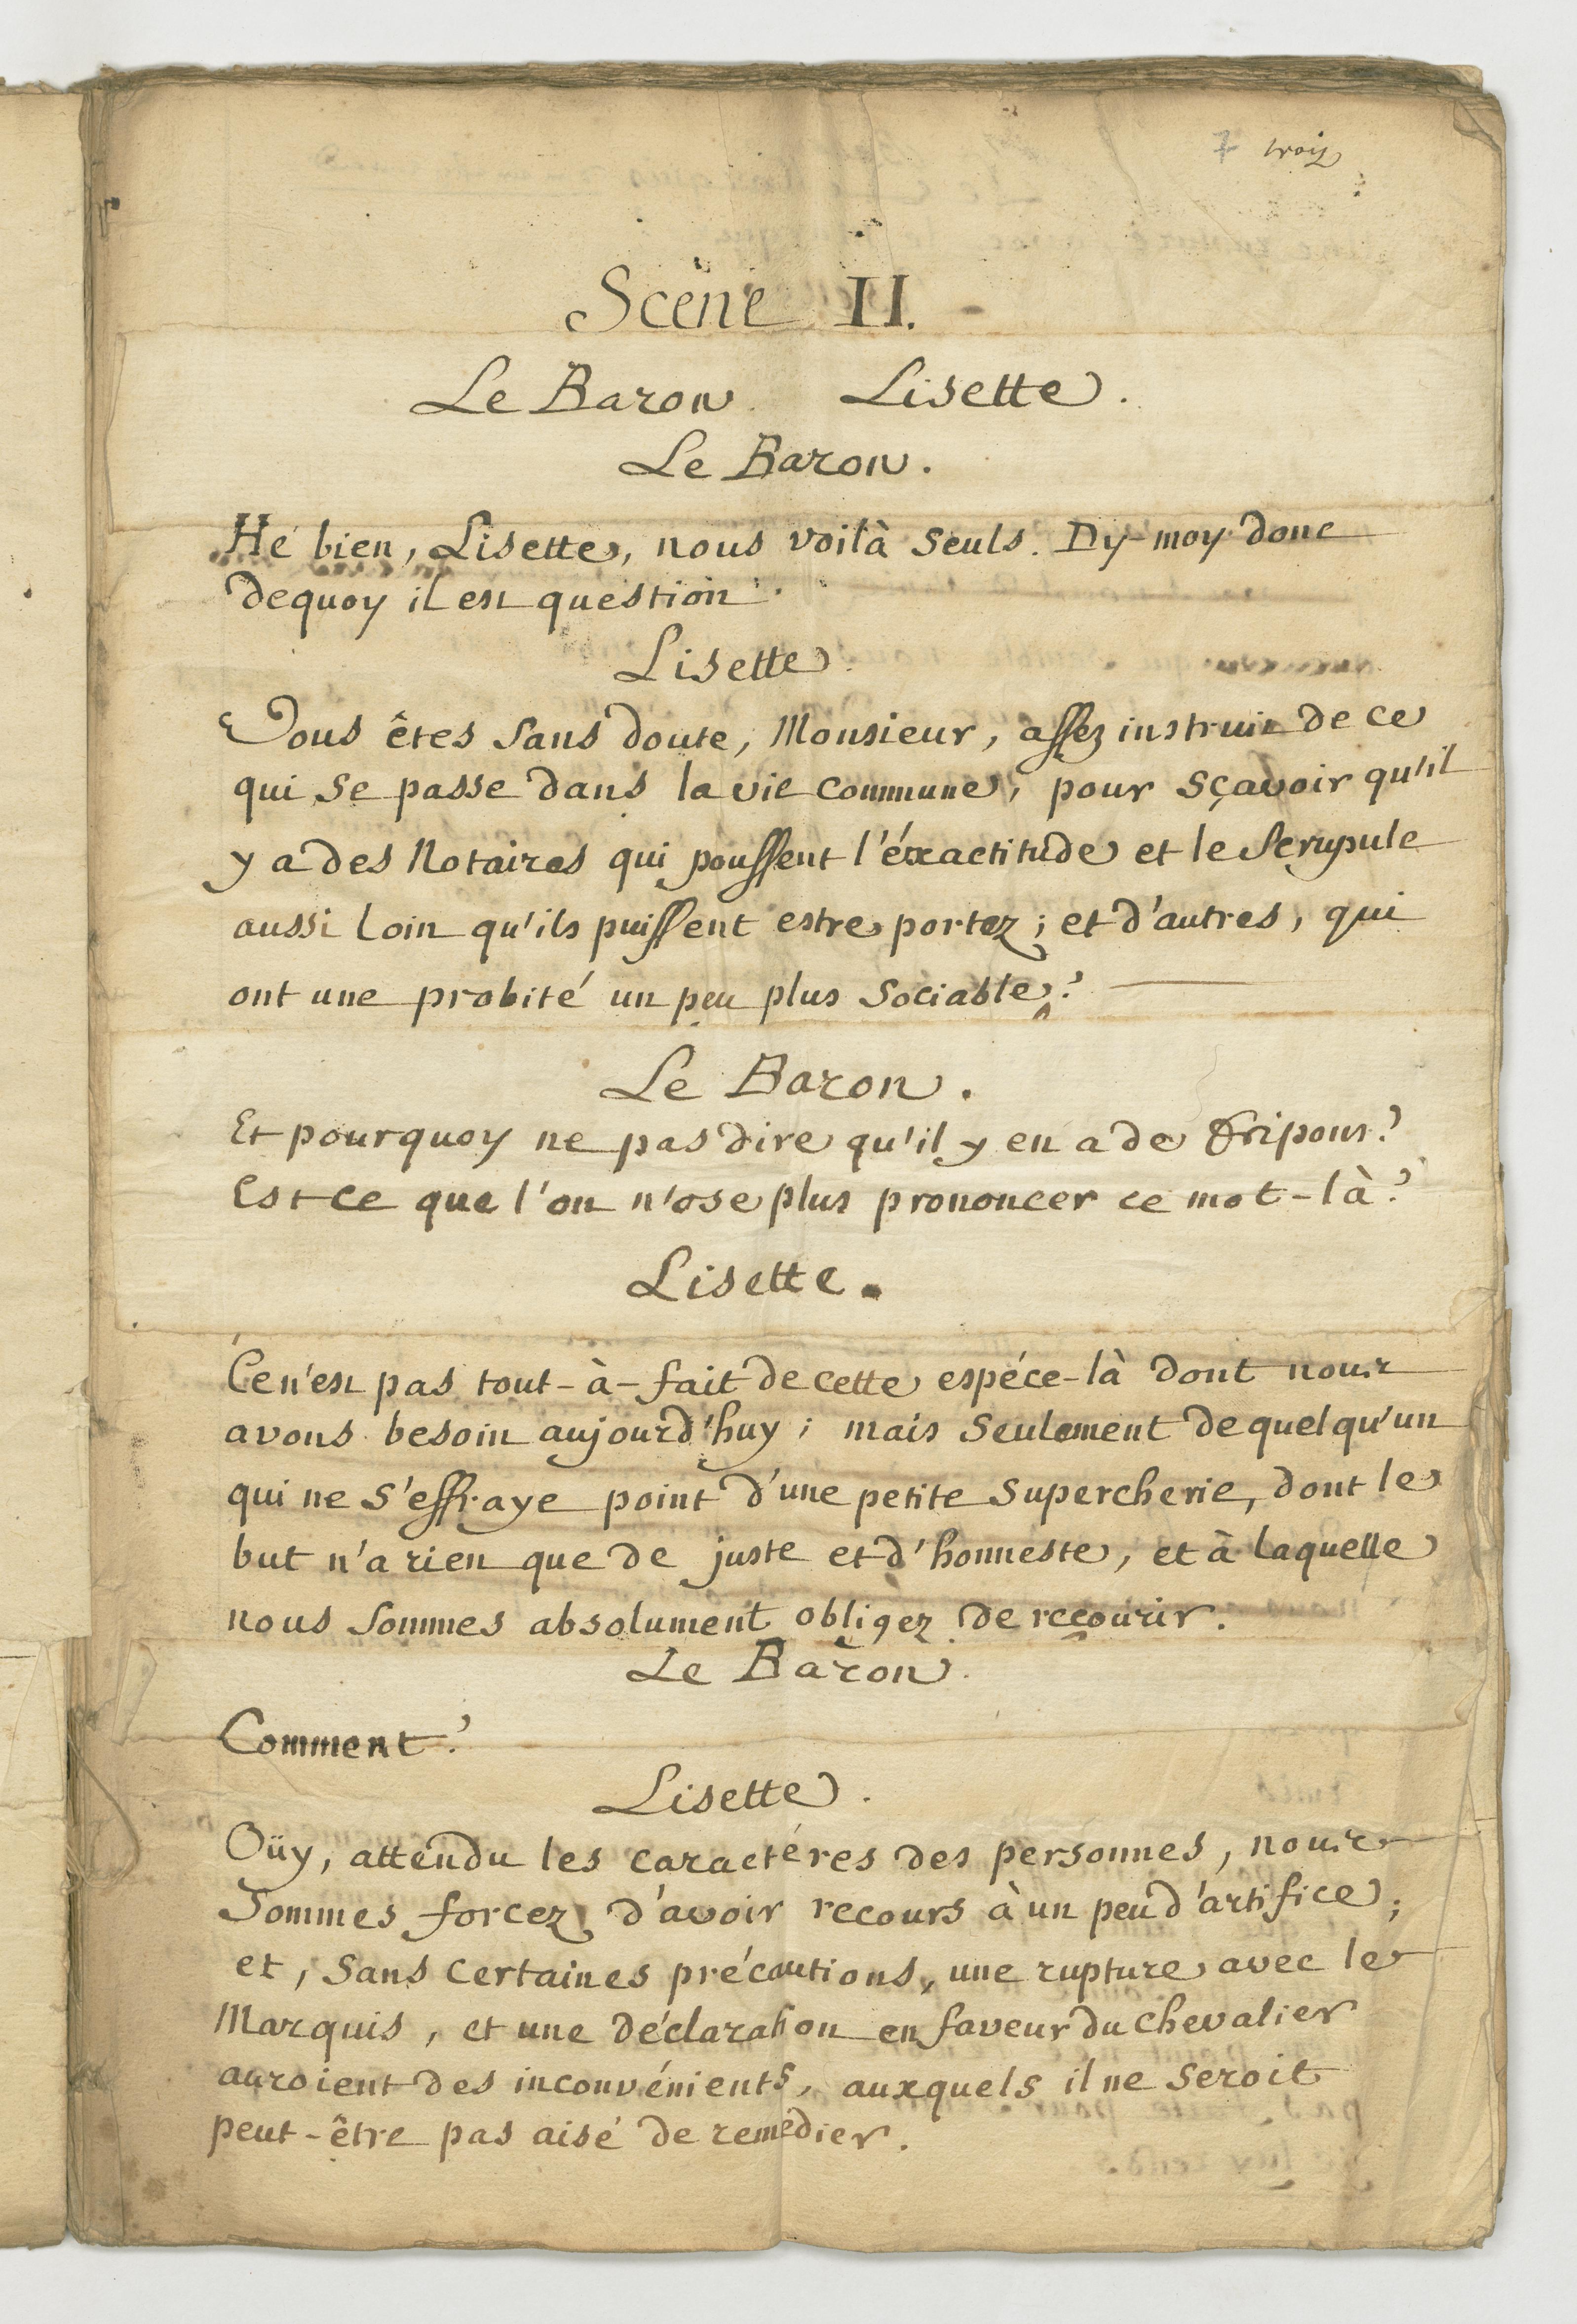 7 trois
Scene II.
Le Baron Lisette.
Le Baron.
Hé bien, Lisette, nous voilà seuls. Dy-moy donc
dequoy il est question.
Lisette.
Vous êtes sans doute, Monsieur, assez instruit de ce
qui se passe dans la vie commune, pour sçavoir qu'il
y a des Notaires qui poussent l'éxactitude et le scrupule
aussi loin qu'ils puissent estre portez; et d'autres, qui
ont une probité un peu plus sociable?
Le Baron.
Et pourquoy ne pas dire qu'il y en a de fripons?
Est-ce que l'on n'ose plus prononcer ce mot-là?
Lisette.
Ce n'est pas tout-à-fait de cette espéce-là dont nous
avons besoin aujourd'huy; mais seulement de quelqu'un
qui ne s'effraye point d'une petite supercherie, dont le
but n'a rien que de juste et d'honneste, et à laquelle
nous sommes absolument obligez de recourir.
Le Baron.
Comment?
Lisette.
Oüy, attendu les caractéres des personnes, nous
sommes forcez d'avoir recours à un peu d'artifice;
et, sans certaines précautions, une rupture avec le
Marquis, et une déclaration en faveur du chevalier
auroient des inconvénients, auxquels il ne seroit
peut-être pas aisé de remédier.